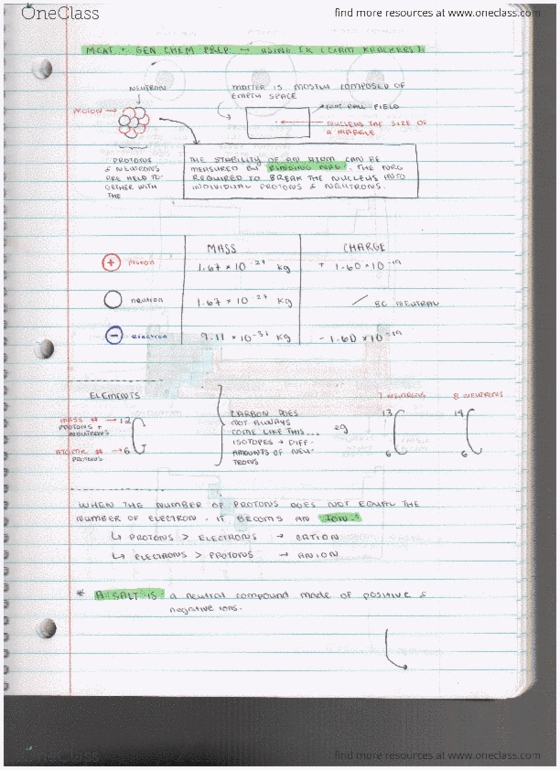 OneClass
find more resources at www.oneclass.com
MCAT: GEN CHEM PREP → USING EK (EXAM KRACKERS)
NEUTRON
MATTER IS MOSTLY COMPOSED OF
EMPTY SPACE
PROTON
FIELD
NUCLEUS THE SIZE OF
A MARBLE
PROTONS
& NEUTRONS
ARE HELD TO
GETHER WITH
THE
THE STABILITY OF AN ATOM CAN BE
MEASURED BY BINDING NRG. THE NRG
REQUIRED TO BREAK THE NUCLEUS INTO
INDIVIDUAL PROTONS & NEUTRONS.
MASS CHARGE
+ PROTON 1.67 × 10⁻²⁷ kg + 1.60 × 10⁻¹⁹
neutron 1.67 × 10⁻²⁷ kg BC NEUTRAL
− electron 9.11 × 10⁻³¹ kg − 1.60 × 10⁻¹⁹
ELEMENTS
7 NEUTRONS 8 NEUTRONS
MASS # → 12
PROTONS +
NEUTRONS
C
ATOMIC # → 6
PROTONS
CARBON DOES
NOT ALWAYS
COME LIKE THIS...
ISOTOPES → DIFF.
AMOUNTS OF NEU-
TRONS
eg
13 C 6
14 C 6
WHEN THE NUMBER OF PROTONS DOES NOT EQUAL THE
NUMBER OF ELECTRON. IT BECOMS AN ION.
↳ PROTONS > ELECTRONS → CATION
↳ ELECTRONS > PROTONS → ANION
* A SALT IS a neutral compound made of positive &
negative ions.
OneClass
find more resources at www.oneclass.com